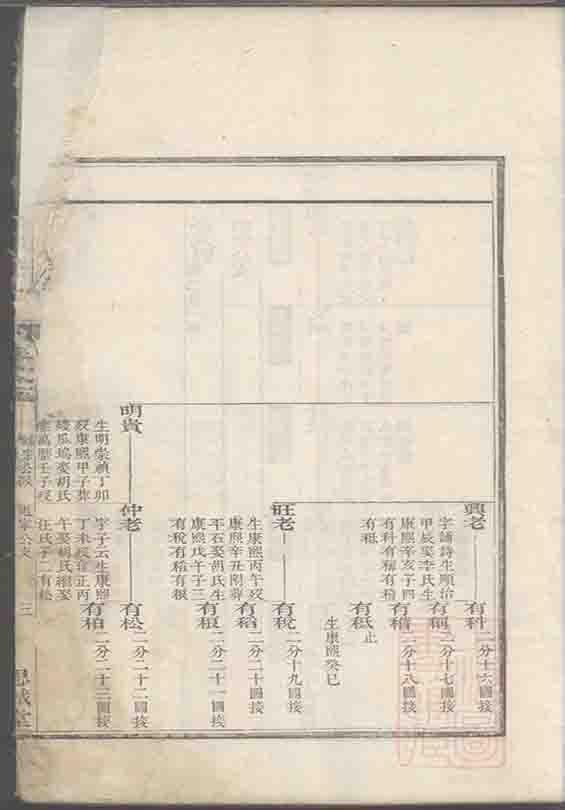 興老
字誦詩生順治
甲辰娶李氏生
康熙辛亥子四
有科有稱有稽
有秪
有科
二分十六圖接
有稱
二分十七圖接
有稽
二分十八圖接
有秪止
生康熙癸巳
旺老
生康熙丙午歿
康熙辛丑附葬
平石娶胡氏生
康熙戊午子三
有稅有稻有根
有稅
二分十九圖接
有稻
二分二十圖接
有根
二分二十一圖接
明貴
生明崇禎丁卯
歿康熙甲子葬
瓜塢娶胡氏
萬曆壬子歿
仲老
字子云生康熙
丁未歿雍正丙
午娶胡氏繼娶
汪氏子二有松
有松
二分二十二圖接
有柏
二分二十三圖接
三
思誠堂